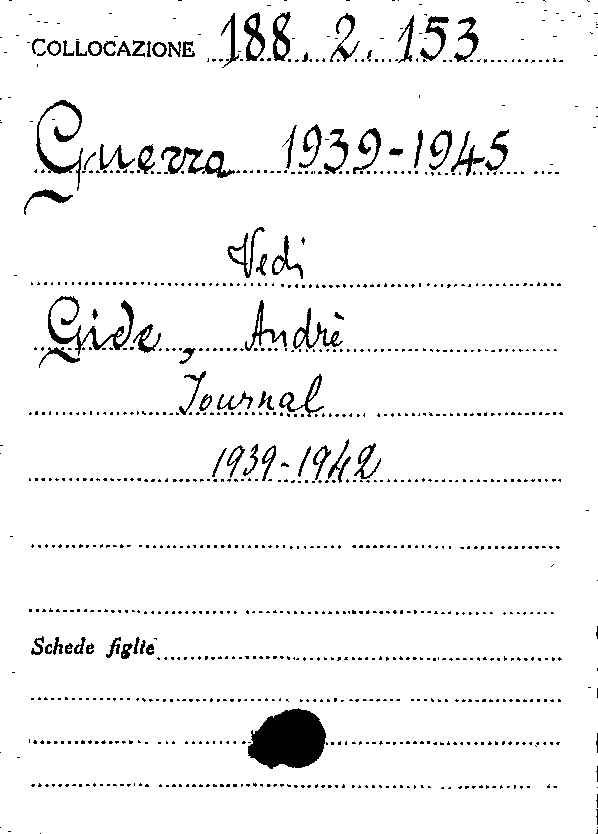 COLLOCAZIONE 188. 2. 153
Guerra 1939-1945
Vedi
Gide, Andrè
Journal
1939-1942
Schede figlie